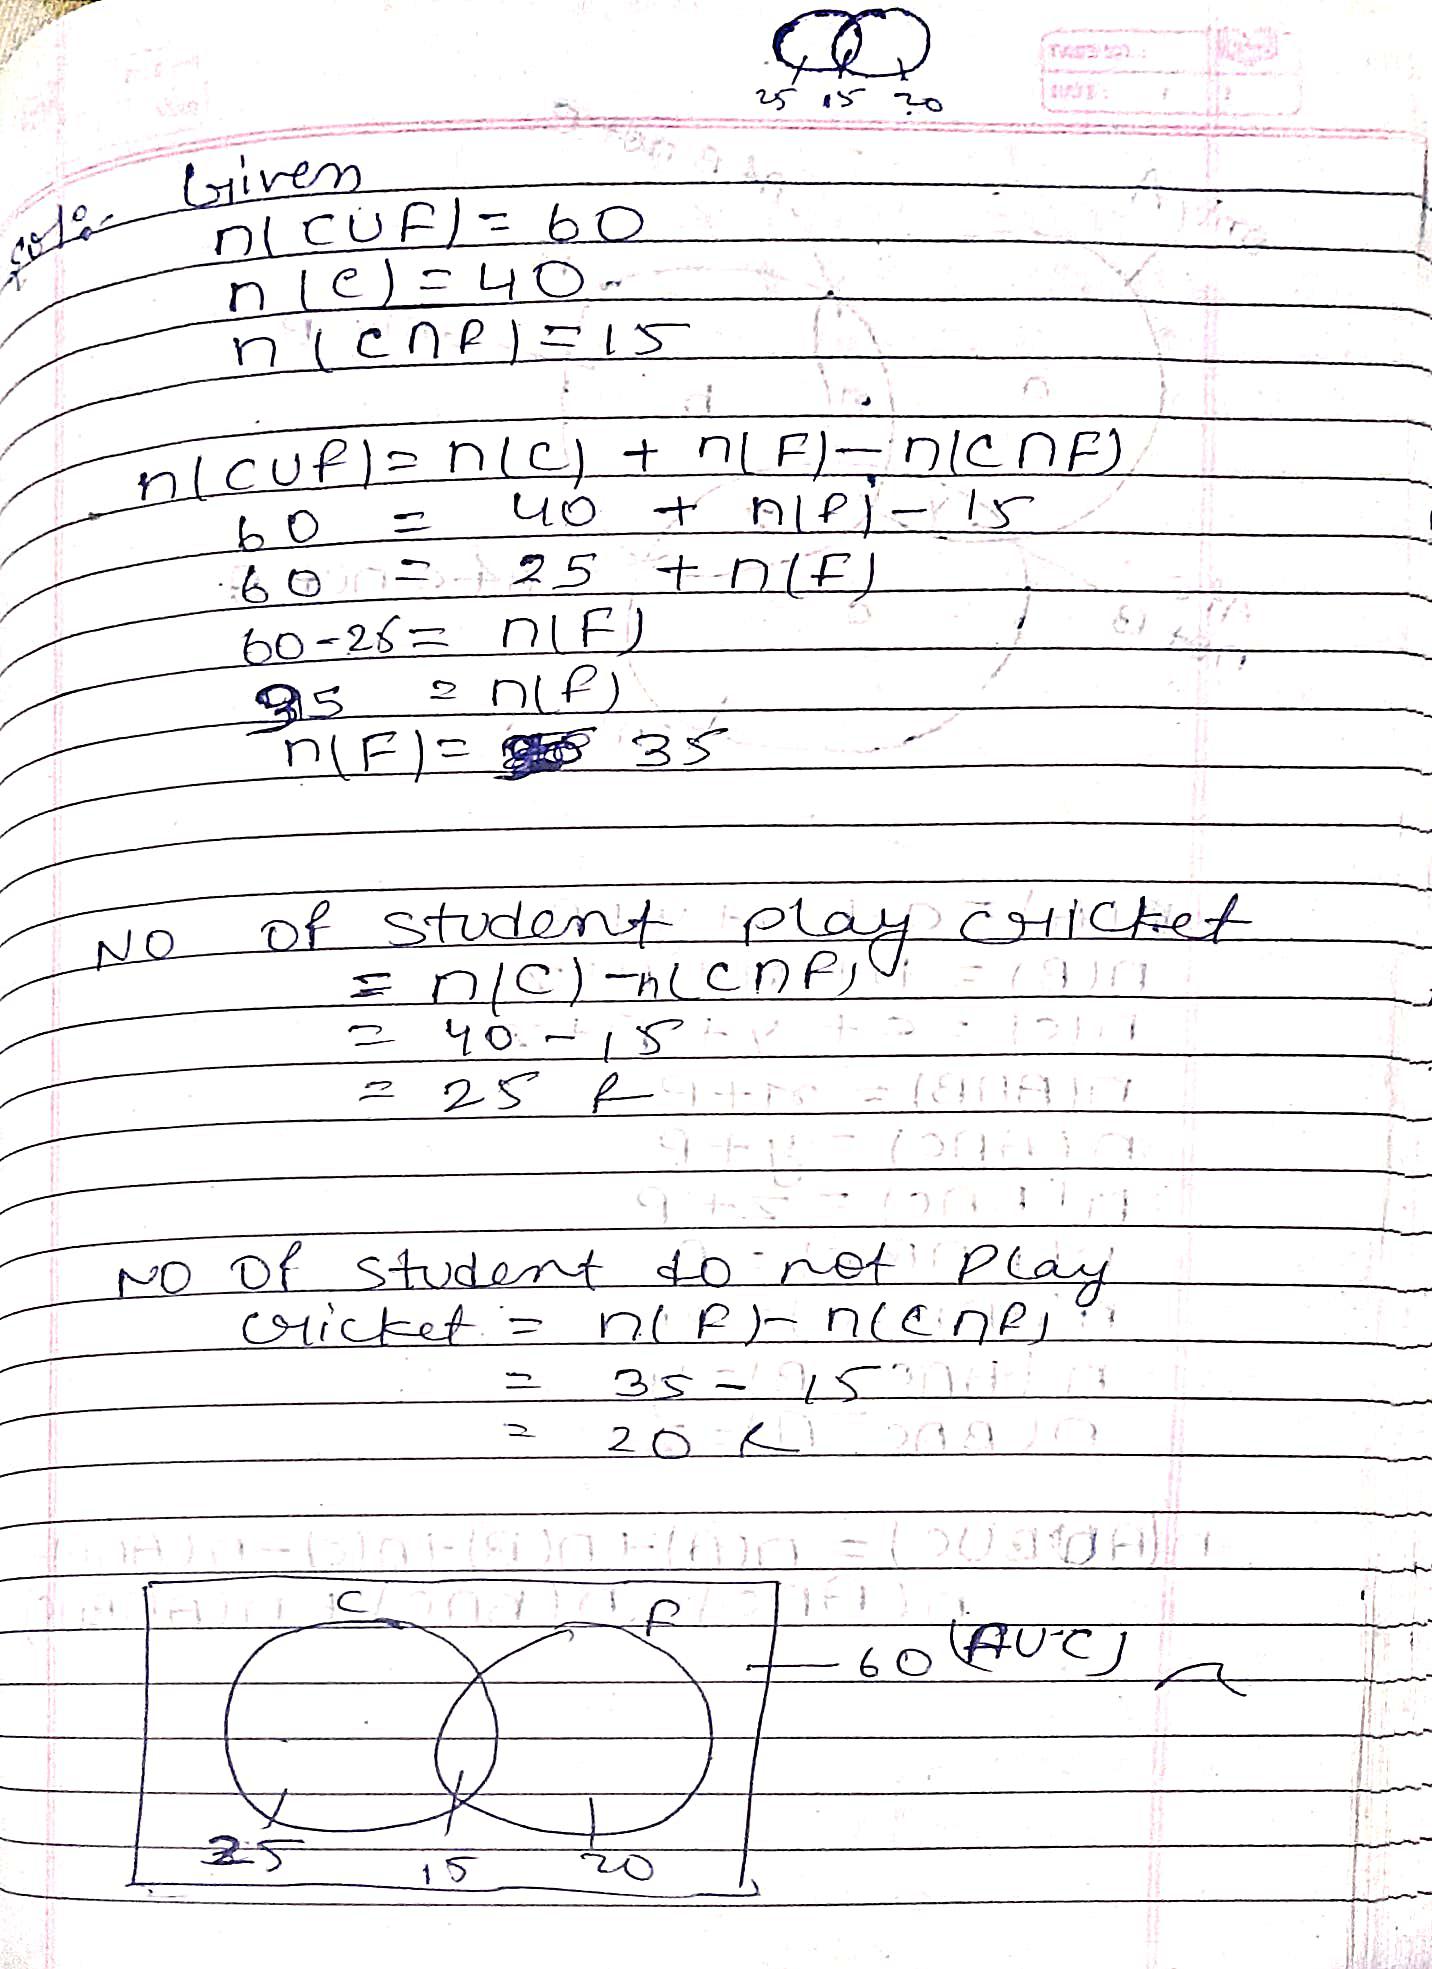 25 15 20
Given
Sol:-
n(CUF) = 60
n(C) = 40
n(C∩F) = 15
n(CUF) = n(C) + n(F) - n(C∩F)
60 = 40 + n(F) - 15
60 = 25 + n(F)
60-25 = n(F)
35 = n(F)
n(F) = 35
NO of student play cricket
= n(C) - n(C∩F)
= 40 - 15
= 25
NO of student do not play
cricket = n(F) - n(C∩F)
= 35 - 15
= 20
C F
60 (AUC)
25 15 20